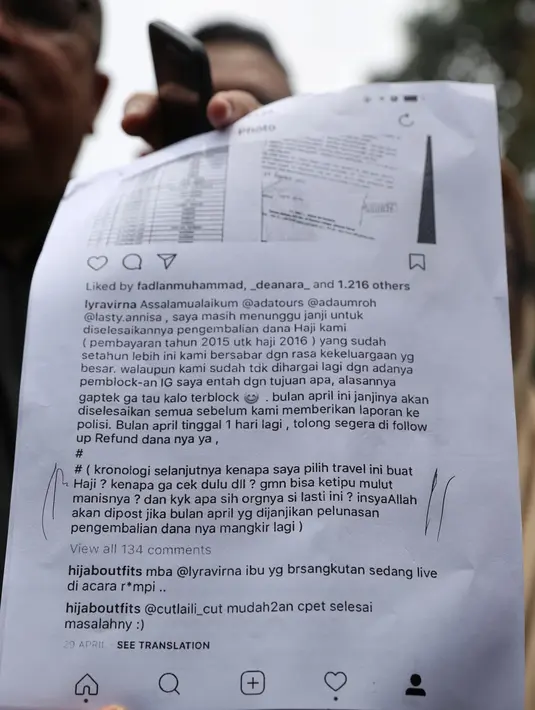 Photo
Liked by fadlanmuhammad, _deanara_ and 1.216 others
lyravirna Assalamualaikum @adatours @adaumroh
@lasty.annisa , saya masih menunggu janji untuk
diselesaikannya pengembalian dana Haji kami
( pembayaran tahun 2015 utk haji 2016 ) yang sudah
setahun lebih ini kami bersabar dgn rasa kekeluargaan yg
besar. walaupun kami sudah tdk dihargai lagi dgn adanya
pemblock-an IG saya entah dgn tujuan apa, alasannya
gaptek ga tau kalo terblock 😅 . bulan april ini janjinya akan
diselesaikan semua sebelum kami memberikan laporan ke
polisi. Bulan april tinggal 1 hari lagi , tolong segera di follow
up Refund dana nya ya ,
#
# ( kronologi selanjutnya kenapa saya pilih travel ini buat
Haji ? kenapa ga cek dulu dll ? gmn bisa ketipu mulut
manisnya ? dan kyk apa sih orgnya si lasti ini ? insyaAllah
akan dipost jika bulan april yg dijanjikan pelunasan
pengembalian dana nya mangkir lagi )
View all 134 comments
hijaboutfits mba @lyravirna ibu yg brsangkutan sedang live
di acara r*mpi ..
hijaboutfits @cutlaili_cut mudah2an cpet selesai
masalahny :)
29 APRIL SEE TRANSLATION